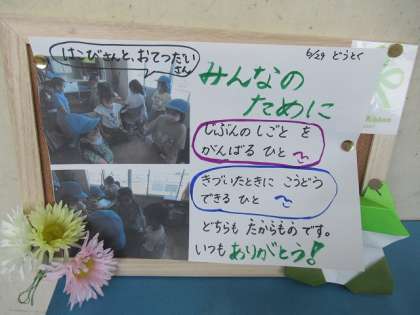 はこびさんと、おてつだい
さん
6/29 どうとく
みんなの
ために
じぶんの しごと を
がんばる ひと
きづいたときに こうどう
できる ひと
どちらも たからもの です。
いつも ありがとう!
Ribbon